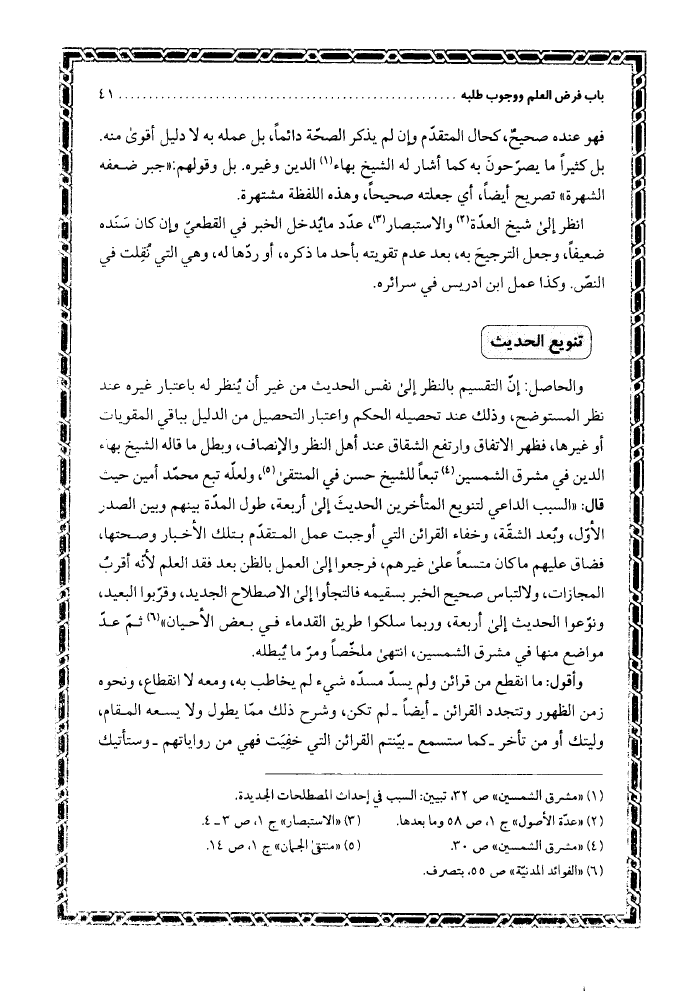 باب فرض العلم ووجوب طلبه ........................................................ ٤١
فهو عنده صحيحٌ، كحال المتقدّم وإن لم يذكر الصحّة دائماً، بل عمله به لا دليل أقوىٰ منه.
بل كثيراً ما يصرّحونَ به كما أشار له الشيخ بهاء(١) الدين وغيره. بل وقولهم:«جبر ضعفه
الشهرة» تصريح أيضاً، أي جعلته صحيحاً، وهذه اللفظة مشتهرة.
انظر إلىٰ شيخ العدّة(٢) والاستبصار(٣)، عدّد مايُدخل الخبر في القطعيّ وإن كان سَنَده
ضعيفاً، وجعل الترجيحَ به، بعد عدم تقويته بأحد ما ذكره، أو ردّها له، وهي التي نُقِلت في
النصّ. وكذا عمل ابن ادريس في سرائره.
تنويع الحديث
والحاصل: إنّ التقسيم بالنظر إلىٰ نفس الحديث من غير أن يُنظر له باعتبار غيره عند
نظر المستوضح، وذلك عند تحصيله الحكم واعتبار التحصيل من الدليل بباقي المقويات
أو غيرها، فظهر الاتفاق وارتفع الشقاق عند أهل النظر والإنصاف، وبطل ما قاله الشيخ بهاء
الدين في مشرق الشمسين(٤) تبعاً للشيخ حسن في المنتقىٰ(٥)، ولعلّه تبع محمّد أمين حيث
قال: «السبب الداعي لتنويع المتأخرين الحديثَ إلىٰ أربعة، طول المدّة بينهم وبين الصدر
الأوّل، وبُعد الشقّة، وخفاء القرائن التي أوجبت عمل المتقدّم بتلك الأخبار وصحتها،
فضاق عليهم ماكان متسعاً علىٰ غيرهم، فرجعوا إلىٰ العمل بالظن بعد فقد العلم لأنّه أقربُ
المجازات، ولالتباس صحيح الخبر بسقيمه فالتجأوا إلىٰ الاصطلاح الجديد، وقرّبوا البعيد،
ونوّعوا الحديث إلىٰ أربعة، وربما سلكوا طريق القدماء في بعض الأحيان»(٦) ثمّ عدّ
مواضع منها في مشرق الشمسين، انتهىٰ ملخّصاً ومرّ ما يُبطله.
وأقول: ما انقطع من قرائن ولم يسدّ مسدّه شيء لم يخاطب به، ومعه لا انقطاع، ونحوه
زمن الظهور وتتجدد القرائن ـ أيضاً ـ لم تكن، وشرح ذلك ممّا يطول ولا يسعه المقام،
وليتك أو من تأخر ـ كما ستسمع ـ بيّنتم القرائن التي خفِيَت فهي من رواياتهم ـ وستأتيك
(١) «مشرق الشمسين» ص ٣٢، تبيين: السبب في إحداث المصطلحات الجديدة.
(٢) «عدّة الأصول» ج ١، ص ٥٨ وما بعدها. (٣) «الاستبصار» ج ١، ص ٣ـ٤.
(٤) «مشرق الشمسين» ص ٣٠. (٥) «منتقىٰ الجمان» ج ١، ص ١٤.
(٦) «الفوائد المدنيّة» ص ٥٥، بتصرف.